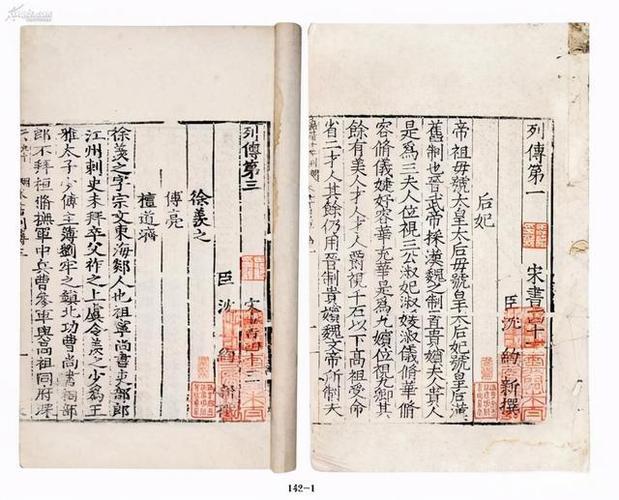 列傳第一
宋書四十一
臣沈約新撰
后妃
帝祖母號太皇太后母號皇太后妃號皇后漢
舊制也晉武帝採漢魏之制置貴嬪夫人貴人
是爲三夫人位視三公淑妃淑媛淑儀脩華脩
容脩儀婕妤容華充華是爲九嬪位視九卿其
餘有美人才人中才人爵視千石以下高祖受命
省二才人其餘仍用晉制貴嬪魏文帝所制夫
列傳第三
宋書四十
臣沈約新撰
徐羨之
傅亮
檀道濟
徐羨之字宗文東海郯人也祖寧尚書吏部郎
江州刺史未拜卒父祚之上虞令羨之少爲王
雅太子少傅主簿劉牢之鎮北功曹尚書祠部
郎不拜桓脩撫軍中兵曹參軍與高祖同府深
142-1